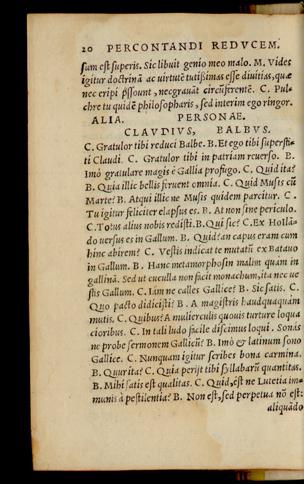 20 PERCONTANDI REDVCEM.
sum est superis. Sic libuit genio meo malo. M. Vides
igitur doctrinā ac virtutē tutißimas esse diuitias, quæ
nec eripi poßunt, neq̨ grauāt circūferentē. C. Pul-
chre tu quidē philosopharis, sed interim ego ringor.
ALIA. PERSONAE.
CLAVDIVS, BALBVS.
C. Gratulor tibi reduci Balbe. B. Et ego tibi supersti-
ti Claudi. C. Gratulor tibi in patriam reuerso. B.
Imò gratulare magis è Gallia profugo. C. Quid ita?
B. Quia illic bellis feruent omnia. C. Quid Musis cū
Marte? B. Atqui illic ne Musis quidem parcitur. C.
Tu igitur feliciter elapsus es. B. At non sine periculo.
C. Totus alius nobis redisti. B. Qui sic? C. Ex Hollā-
do uersus es in Gallum. B. Quid? an capus eram cum
hinc abirem? C. Vestis indicat te mutatū ex Batauo
in Gallum. B. Hanc metamorphosin malim quàm in
gallinā. Sed ut cuculla non facit monachum, ita nec ue
stis Gallum. C. Iam ne calles Gallice? B. Sic satis. C.
Quo pacto didicisti? B. A magistris haudquaquàm
mutis. C. Quibus? A mulierculis quouis turture loqua
cioribus. C. In tali ludo facile discimus loqui. Sonás
ne probe sermonem Gallicū? B. Imò & latinum sono
Gallice. C. Nunquam igitur scribes bona carmina.
B. Qur ita? C. Quia perijt tibi syllabarū quantitas.
B. Mihi satis est qualitas. C. Quid, est ne Lutetia im-
munis à pestilentia? B. Non est, sed perpetua nō est:
aliquādo